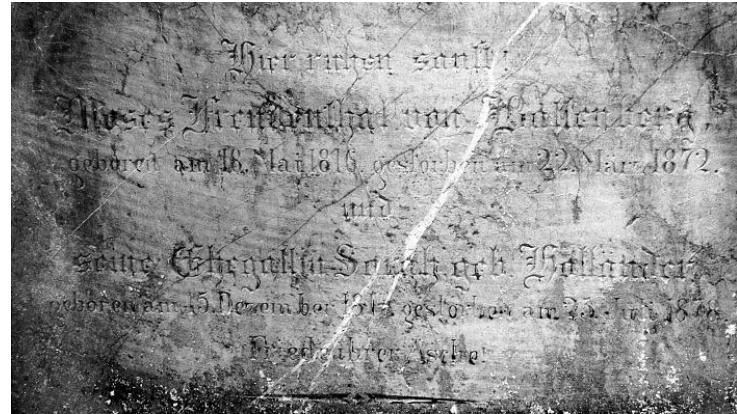 Hier ruhen sanft:
Moses Freudenthal von Wollenberg,
geboren am 16. Mai 1816, gestorben am 22. März 1872.
und
seine Ehegattin Sarah geb Holländer
geboren am 15. Dezember gestorben am 25. Juli
Friede ihrer Asche!